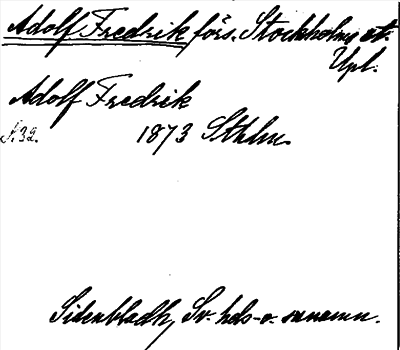 Adolf Fredrik förs. Stockholms st.
Upl.
Adolf Fredrik
S. 32.
1873 Sthlm.
Sidenbladh, Sv. hds- o. sn namn.